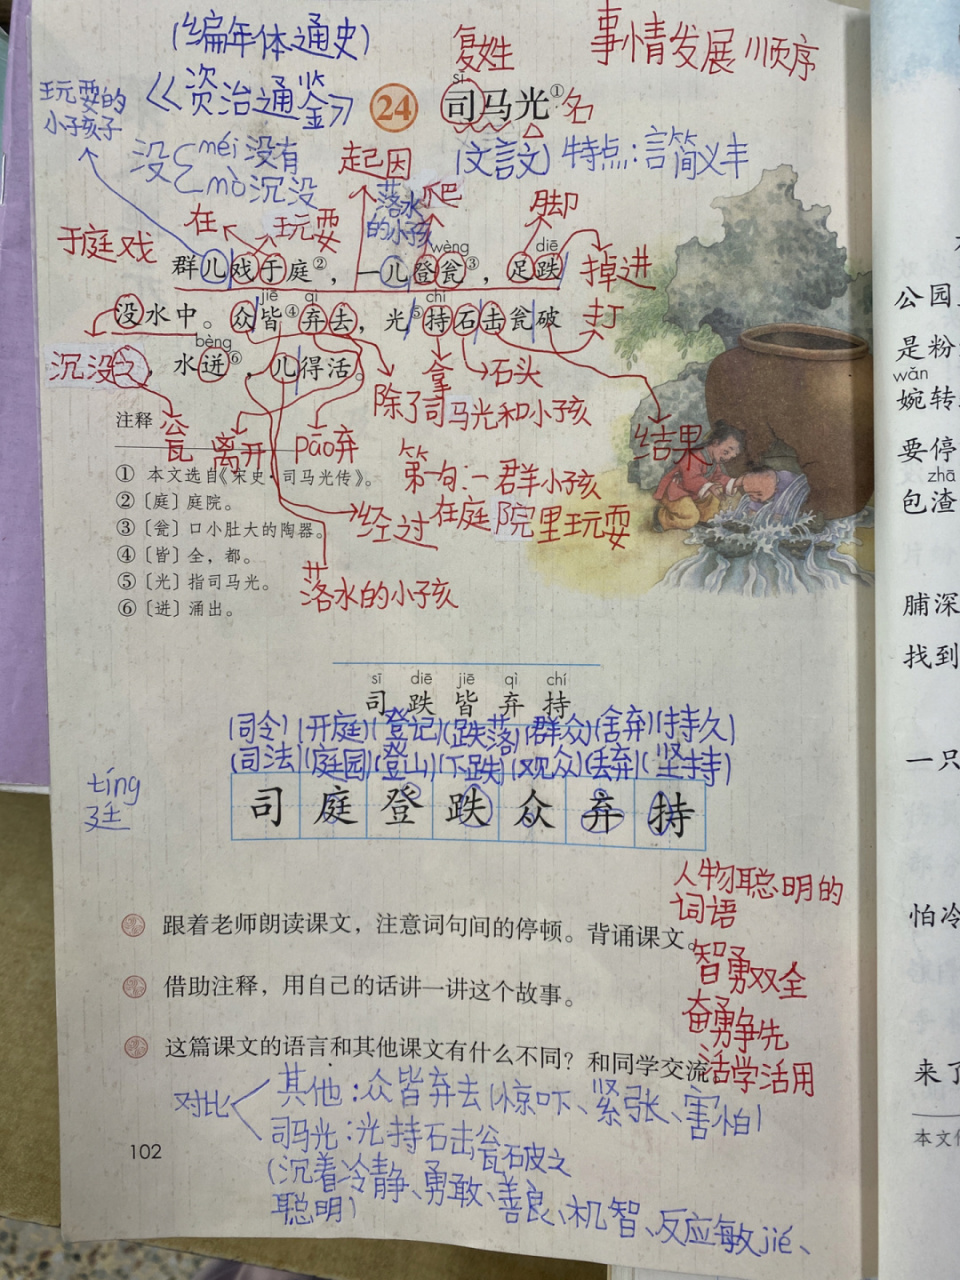 (编年体通史)
《资治通鉴》
复姓
事情发展顺序
sī
24 司马光①
名
玩耍的
小孩子
没 méi 没有
mò 沉没
起因
(文言文) 特点:言简义丰
落水
的小孩
爬
脚
在
玩耍
于庭戏
wèng diē
群儿戏于庭②，一儿登瓮③，足跌
掉进
jiē qì chí
没水中。众皆④弃去，光⑤持石击瓮破
打
bèng
沉没
之，水迸⑥，儿得活。
瓮
离开
pāo弃
拿
石头
除了司马光和小孩
结果
注释
第一句:一群小孩
在庭院里玩耍
经过
落水的小孩
① 本文选自《宋史·司马光传》。
② 〔庭〕庭院。
③ 〔瓮〕口小肚大的陶器。
④ 〔皆〕全，都。
⑤ 〔光〕指司马光。
⑥ 〔迸〕涌出。
sī diē jiē qì chí
司 跌 皆 弃 持
(司令)(开庭)(登记)(跌落)(群众)(舍弃)(持久)
(司法)(庭园)(登山)(下跌)(观众)(丢弃)(坚持)
司 庭 登 跌 众 弃 持
tíng
廷
人物聪明的
词语
智勇双全
奋勇争先
活学活用
跟着老师朗读课文，注意词句间的停顿。背诵课文。
借助注释，用自己的话讲一讲这个故事。
这篇课文的语言和其他课文有什么不同？和同学交流
对比
其他:众皆弃去(惊吓、紧张、害怕)
司马光:光持石击瓮破之
(沉着冷静、勇敢、善良、机智、反应敏jié、
聪明)
102
公园
是粉
wǎn
婉转
要停
zhā
包渣
脯深
找到
一只
怕冷
来了
本文作